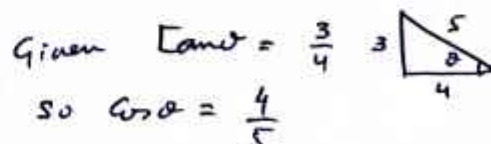 Given tanθ = 3/4 3 5 θ 4
so cosθ = 4/5